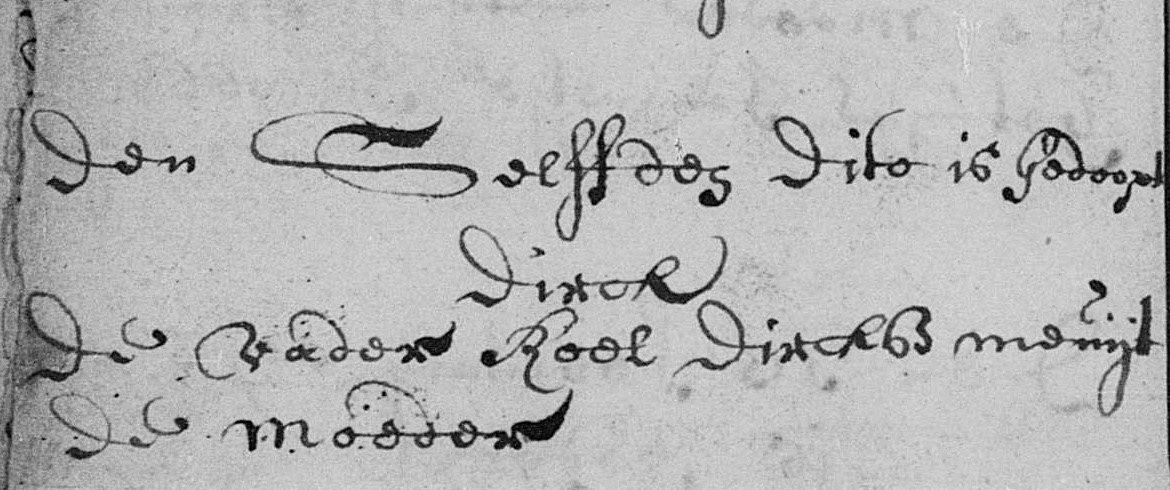 den Selffden dito is gedoopt
dirck
de vader Roel dircksz meuijt
de moeder